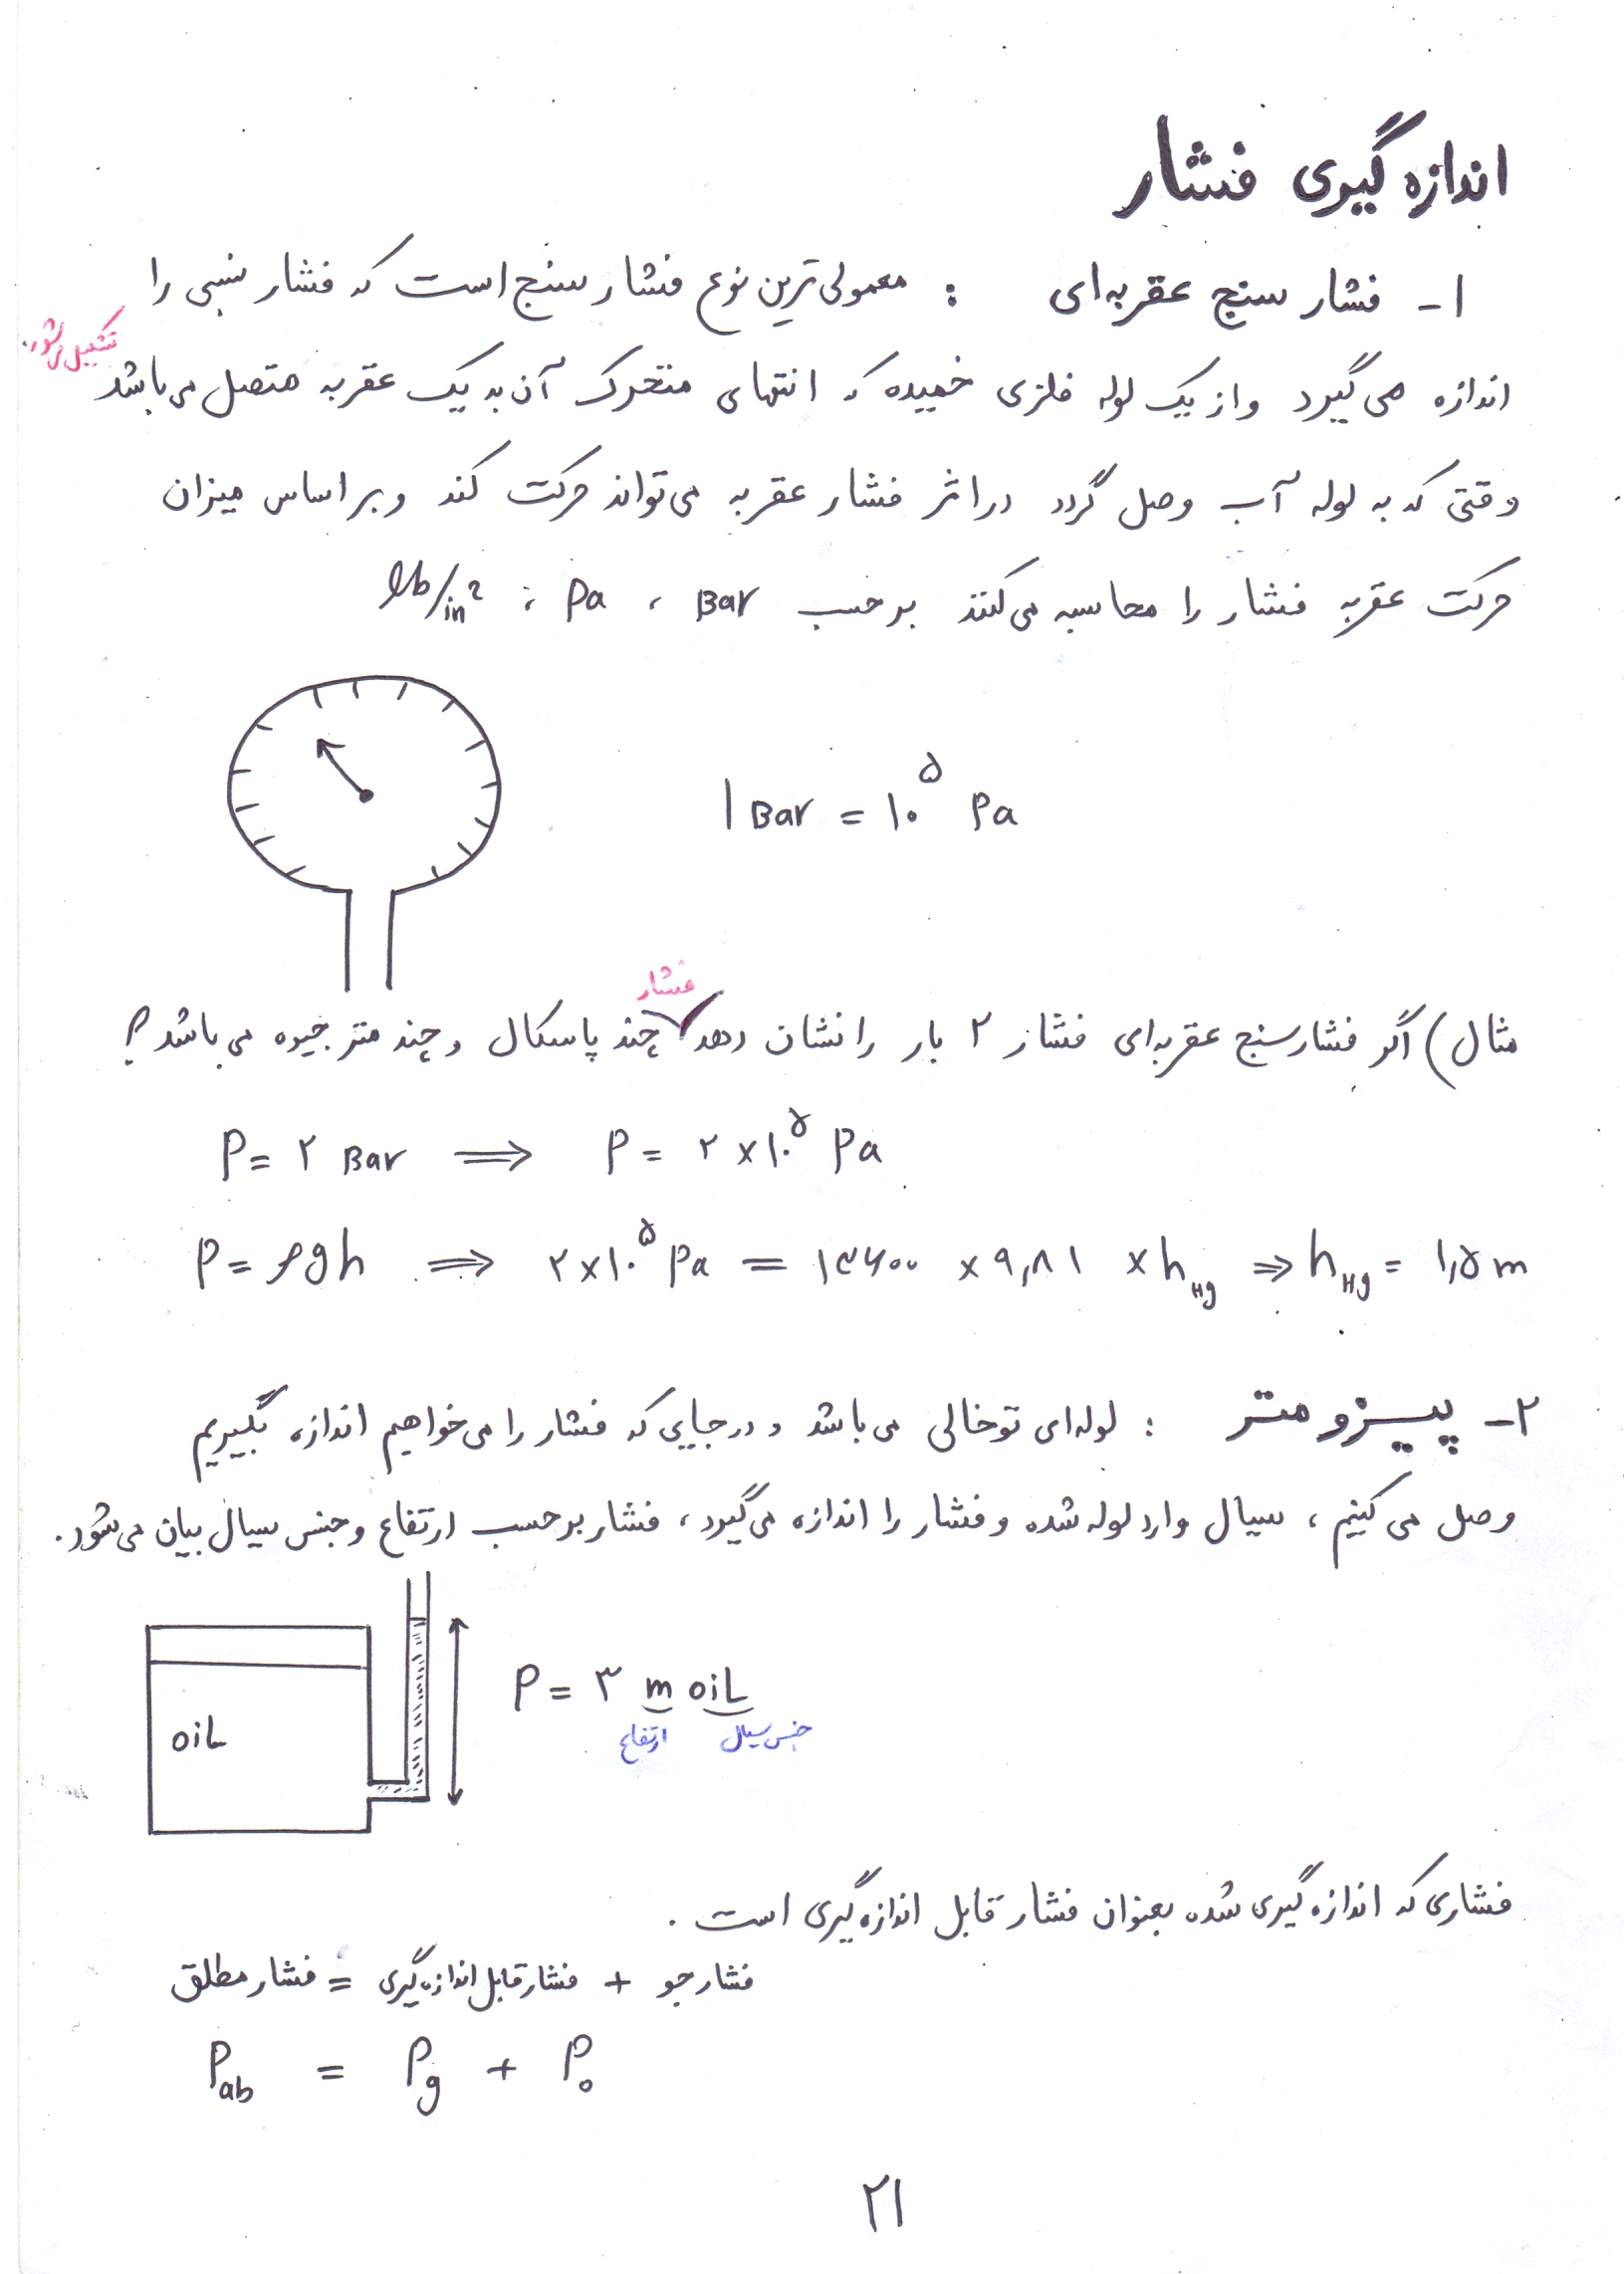 اندازه گیری فشار
۱- فشار سنج عقربه‌ای : معمولی ترین نوع فشار سنج است که فشار نسبی را
اندازه می گیرد و از یک لوله فلزی خمیده که انتهای متحرک آن به یک عقربه متصل می باشد تشکیل می شود.
وقتی که به لوله آب وصل گردد در اثر فشار عقربه می تواند حرکت کند و بر اساس میزان
حرکت عقربه فشار را محاسبه می کنند بر حسب Bar ، Pa ، lb/in²
۱ Bar = ۱۰^۵ Pa
مثال) اگر فشار سنج عقربه‌ای فشار ۲ بار را نشان دهد فشار چند پاسکال و چند متر جیوه می باشد ؟
P = ۲ Bar ⟹ P = ۲ × ۱۰^۵ Pa
P = ρgh ⟹ ۲×۱۰^۵ Pa = ۱۳۶۰۰ × ۹,۸۱ × h_Hg ⟹ h_Hg = ۱,۵ m
۲- پیزومتر : لوله‌ای توخالی می باشد و در جایی که فشار را می خواهیم اندازه بگیریم
وصل می کنیم ، سیال وارد لوله شده و فشار را اندازه می گیرد ، فشار بر حسب ارتفاع و جنس سیال بیان می شود.
oiL
P = ۳ m oiL
ارتفاع جنس سیال
فشاری که اندازه گیری شده بعنوان فشار قابل اندازه گیری است .
فشار مطلق = فشار قابل اندازه گیری + فشار جو
P_ab = P_g + P_۰
۲۱